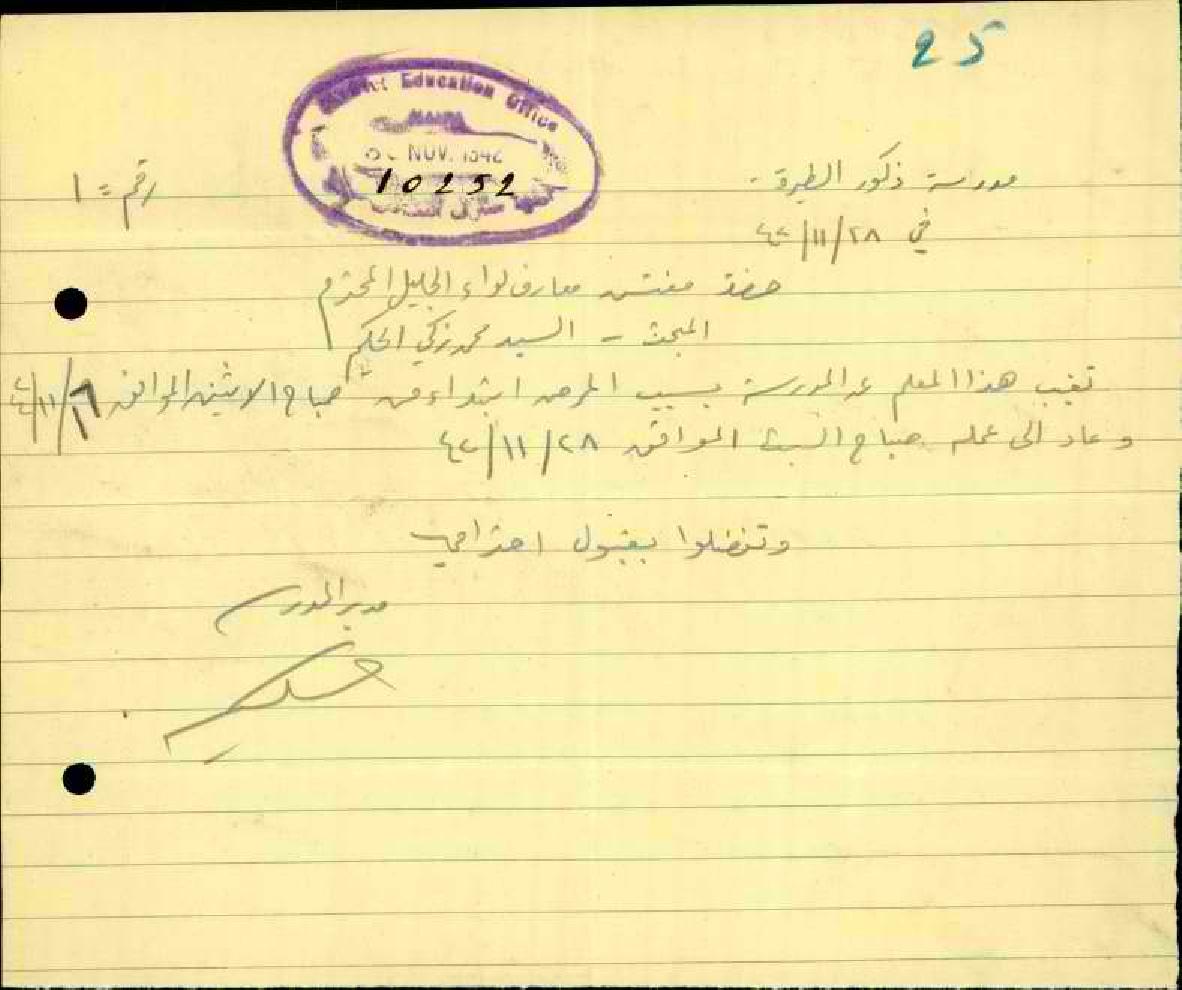 25
District Education Office
HAIFA
NOV. 1942
10252
رقم = ١
مدرسة ذكور الطيرة -
في ٢٨/١١/٤٢
حضرة مفتش معارف لواء الجليل المحترم
المبحث - السيد محمد زكي الحكيم
تغيب هذا المعلم عن المدرسة بسبب المرض ابتداء من صباح الاثنين الموافق ١٦/١١/٤٢
وعاد الى عمله صباح السبت الموافق ٢٨/١١/٤٢
وتفضلوا بقبول احترامي
مدير المدرسة